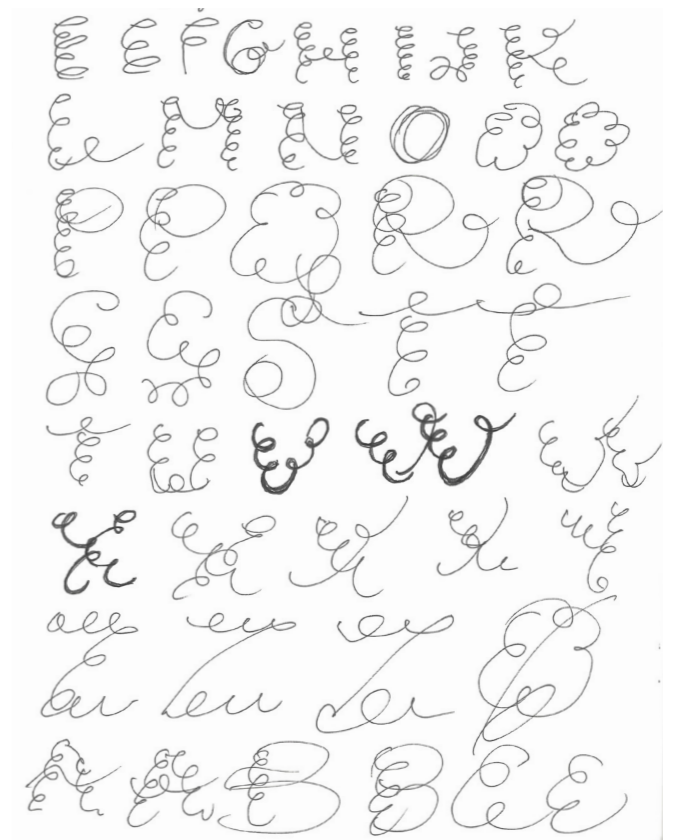 E E F G H I J K
L M N O O O
P P Q R R
S S S T T
T U V W W
X X X X Y
Z Z Z
A A B B C E